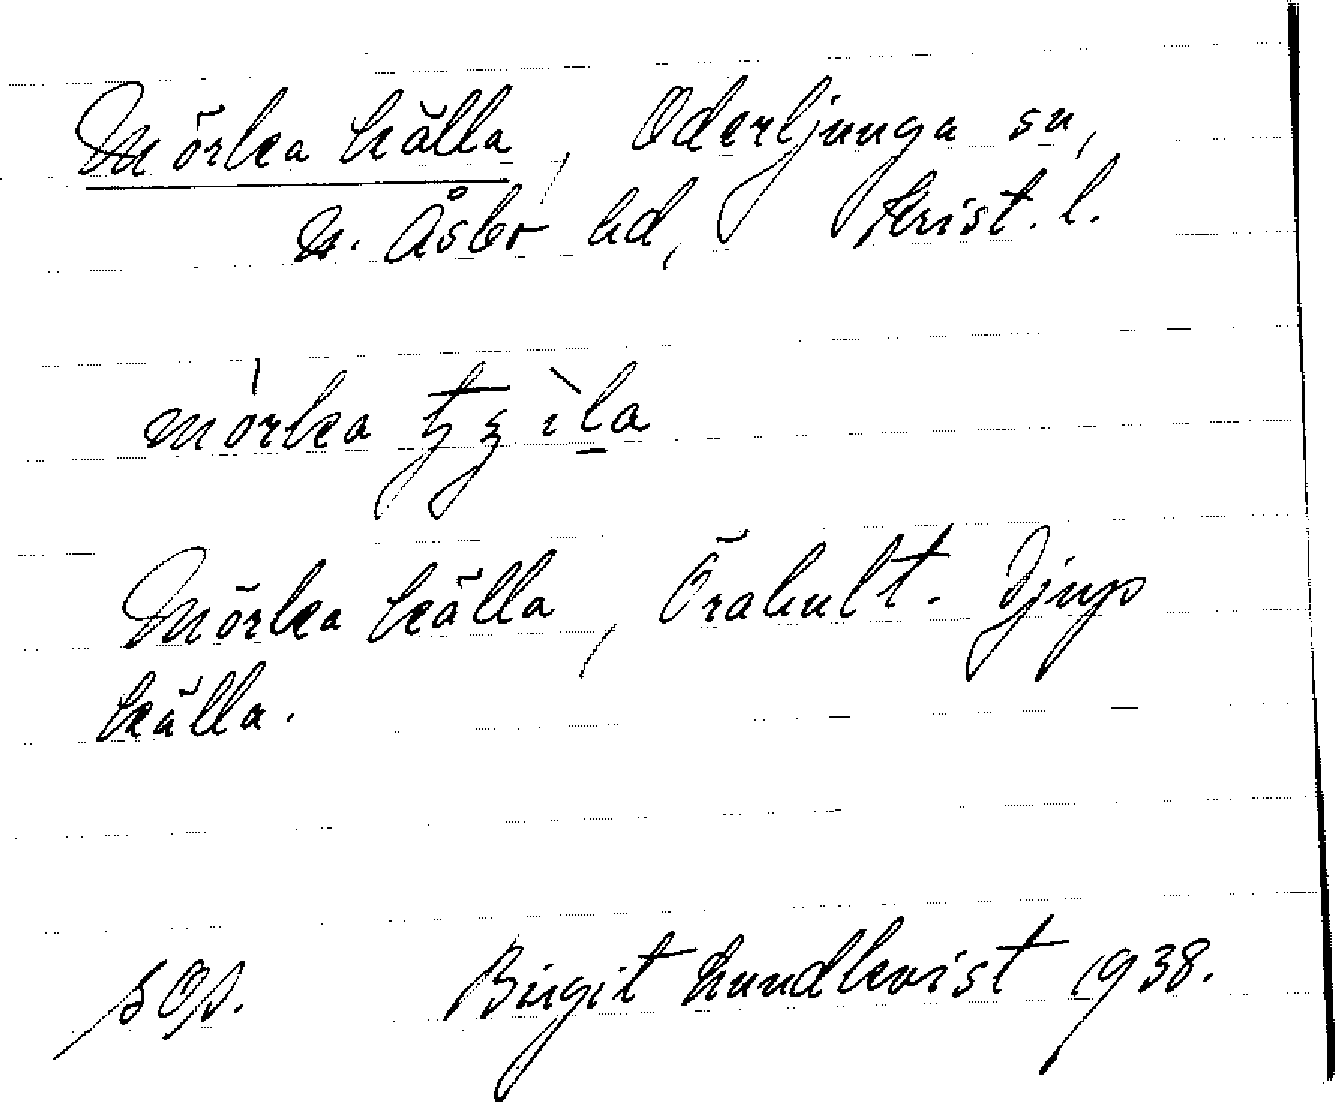 Mörka källa, Oderljunga sn,
N. Åsbo hd, Krist. l.
Mörka källa, Örahult. Djup
källa.
Birgit Lundkvist 1938.